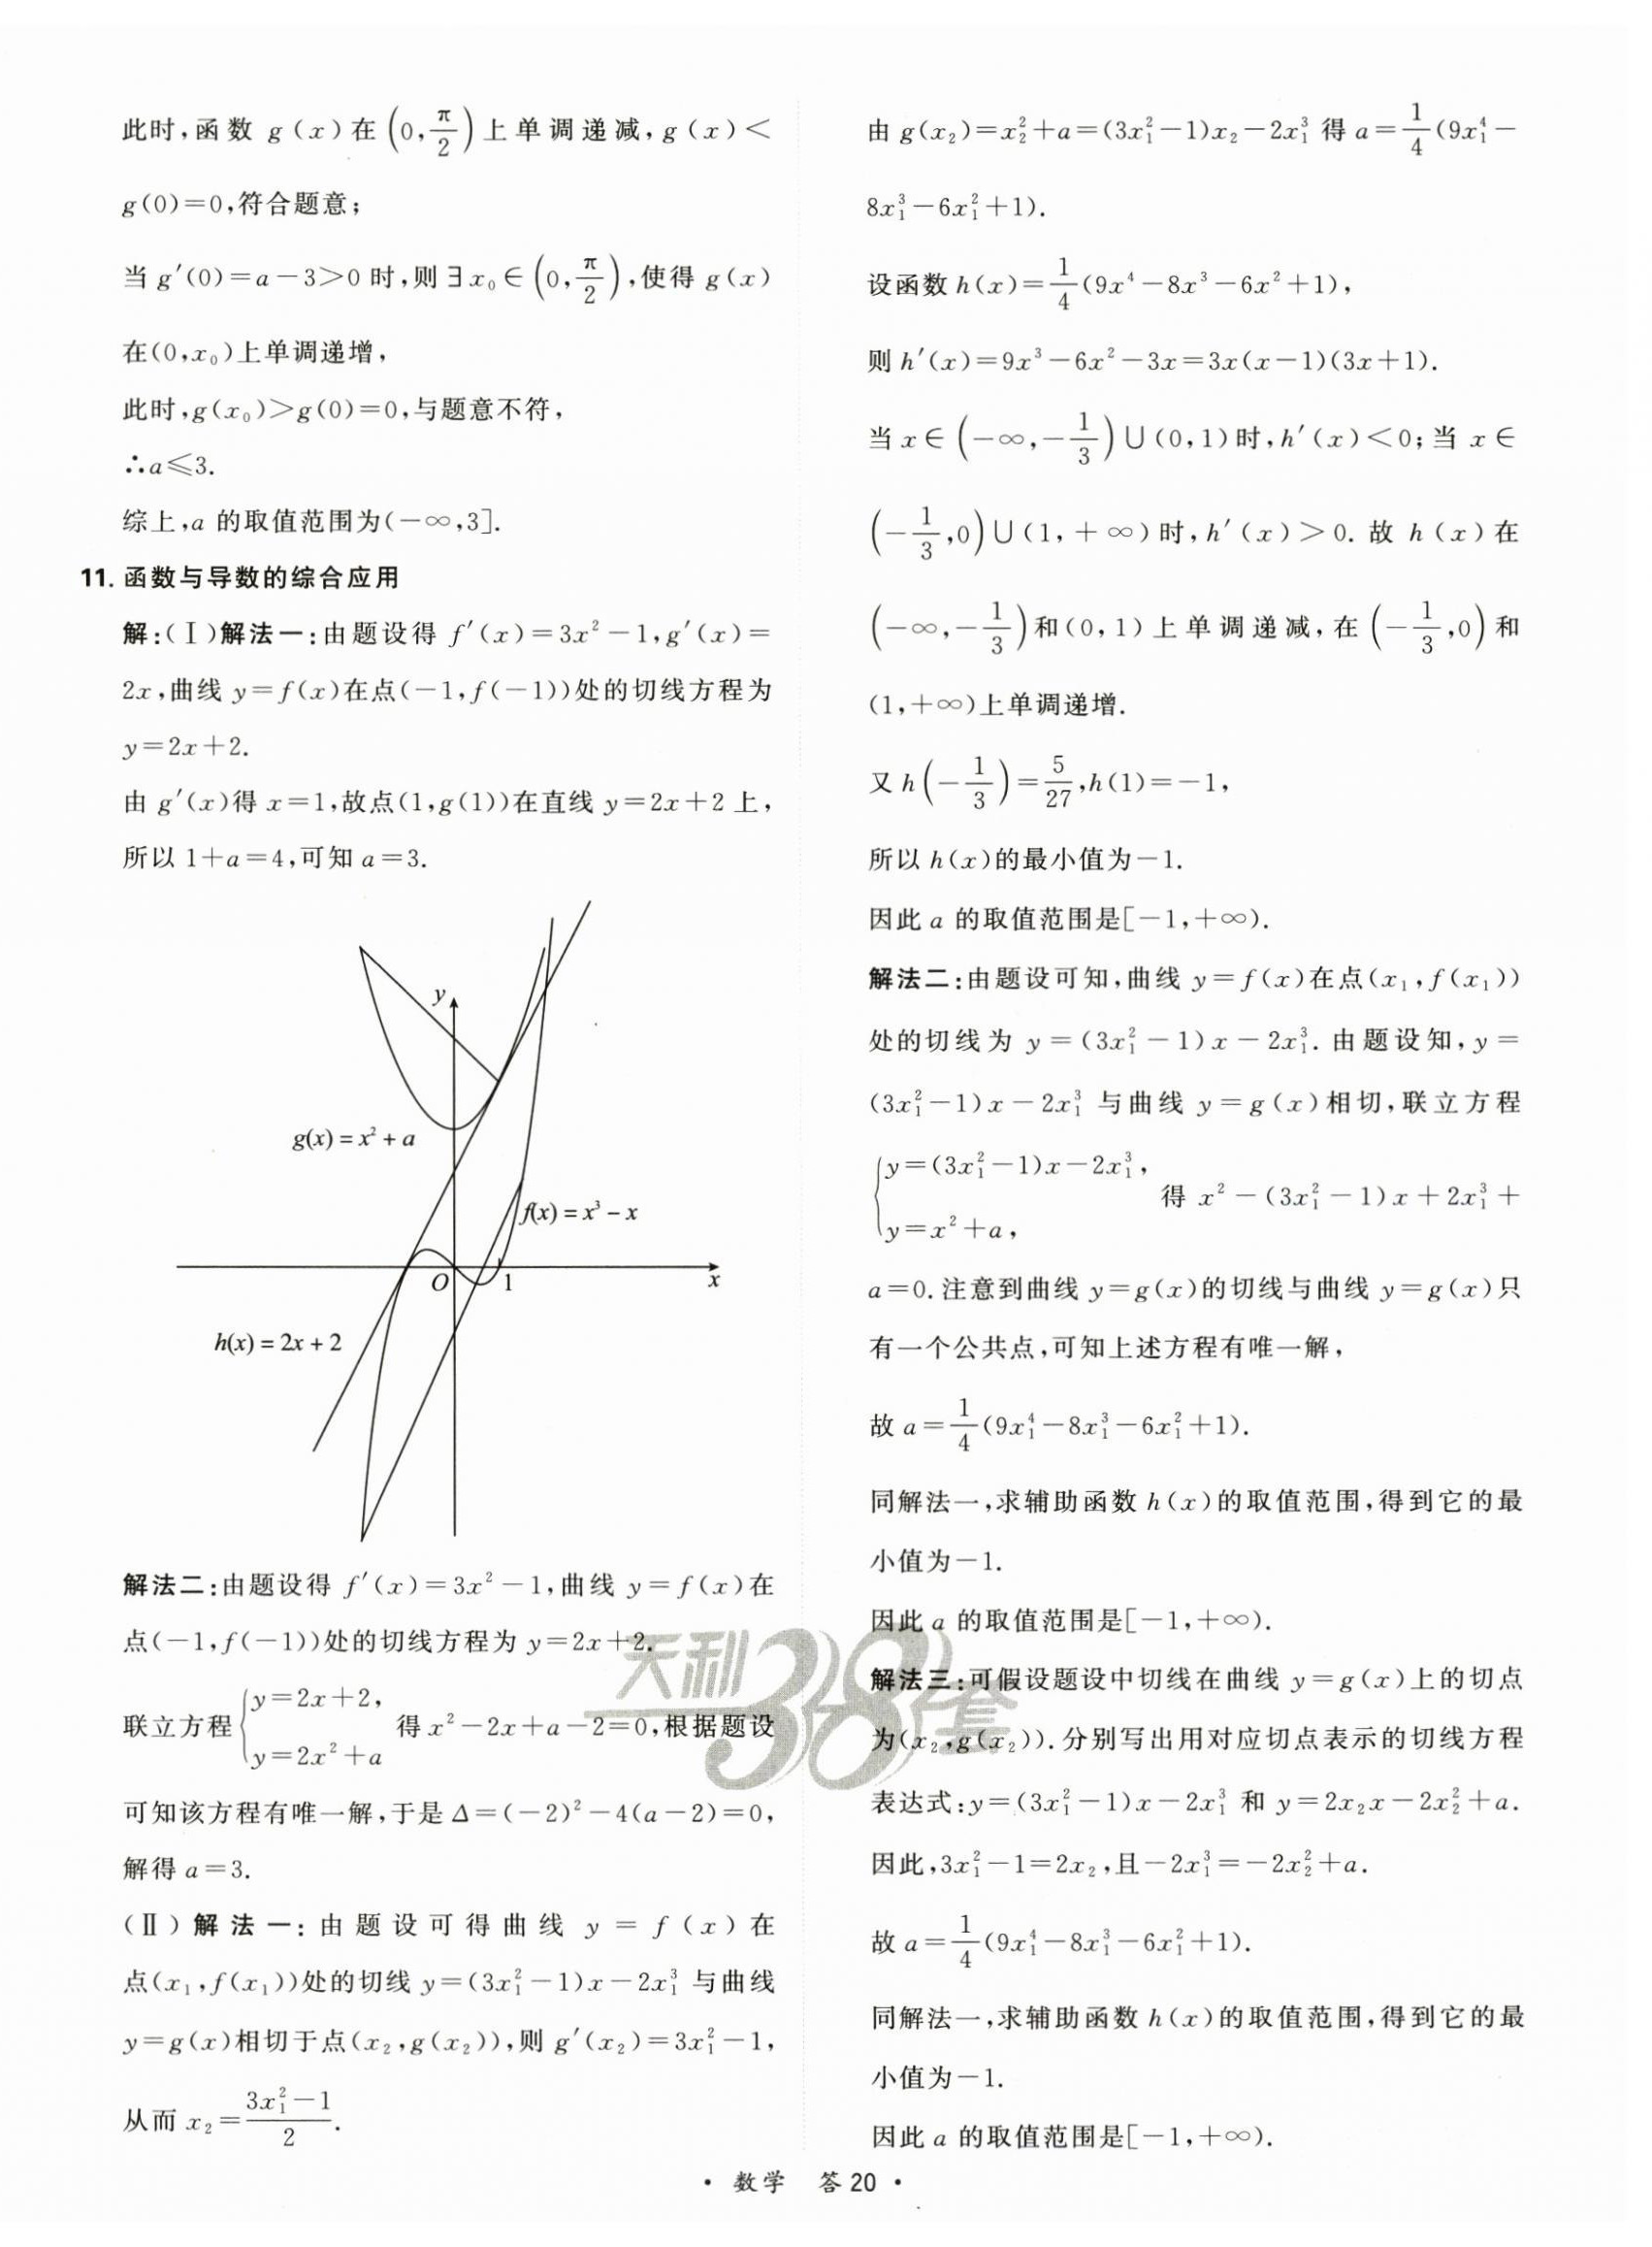 此时,函数 g(x)在(0,π/2)上单调递减,g(x)<
g(0)=0,符合题意;
当 g′(0)=a-3>0 时,则∃x₀∈(0,π/2),使得 g(x)
在(0,x₀)上单调递增,
此时,g(x₀)>g(0)=0,与题意不符,
∴a≤3.
综上,a 的取值范围为(-∞,3].
11. 函数与导数的综合应用
解:(Ⅰ)解法一:由题设得 f′(x)=3x²-1,g′(x)=
2x,曲线 y=f(x)在点(-1,f(-1))处的切线方程为
y=2x+2.
由 g′(x)得 x=1,故点(1,g(1))在直线 y=2x+2 上,
所以 1+a=4,可知 a=3.
y
g(x) = x² + a
f(x) = x³ - x
O 1 x
h(x) = 2x + 2
解法二:由题设得 f′(x)=3x²-1,曲线 y=f(x)在
点(-1,f(-1))处的切线方程为 y=2x+2.
联立方程{y=2x+2, y=2x²+a 得 x²-2x+a-2=0,根据题设
可知该方程有唯一解,于是 Δ=(-2)²-4(a-2)=0,
解得 a=3.
(Ⅱ)解法一:由题设可得曲线 y=f(x)在
点(x₁,f(x₁))处的切线 y=(3x₁²-1)x-2x₁³ 与曲线
y=g(x)相切于点(x₂,g(x₂)),则 g′(x₂)=3x₁²-1,
从而 x₂=(3x₁²-1)/2.
由 g(x₂)=x₂²+a=(3x₁²-1)x₂-2x₁³ 得 a=1/4(9x₁⁴-
8x₁³-6x₁²+1).
设函数 h(x)=1/4(9x⁴-8x³-6x²+1),
则 h′(x)=9x³-6x²-3x=3x(x-1)(3x+1).
当 x∈(-∞,-1/3)∪(0,1)时,h′(x)<0;当 x∈
(-1/3,0)∪(1,+∞)时,h′(x)>0.故 h(x)在
(-∞,-1/3)和(0,1)上单调递减,在(-1/3,0)和
(1,+∞)上单调递增.
又 h(-1/3)=5/27,h(1)=-1,
所以 h(x)的最小值为-1.
因此 a 的取值范围是[-1,+∞).
解法二:由题设可知,曲线 y=f(x)在点(x₁,f(x₁))
处的切线为 y=(3x₁²-1)x-2x₁³.由题设知,y=
(3x₁²-1)x-2x₁³ 与曲线 y=g(x)相切,联立方程
{y=(3x₁²-1)x-2x₁³, y=x²+a, 得 x²-(3x₁²-1)x+2x₁³+
a=0.注意到曲线 y=g(x)的切线与曲线 y=g(x)只
有一个公共点,可知上述方程有唯一解,
故 a=1/4(9x₁⁴-8x₁³-6x₁²+1).
同解法一,求辅助函数 h(x)的取值范围,得到它的最
小值为-1.
因此 a 的取值范围是[-1,+∞).
解法三:可假设题设中切线在曲线 y=g(x)上的切点
为(x₂,g(x₂)).分别写出用对应切点表示的切线方程
表达式:y=(3x₁²-1)x-2x₁³ 和 y=2x₂x-2x₂²+a.
因此,3x₁²-1=2x₂,且-2x₁³=-2x₂²+a.
故 a=1/4(9x₁⁴-8x₁³-6x₁²+1).
同解法一,求辅助函数 h(x)的取值范围,得到它的最
小值为-1.
因此 a 的取值范围是[-1,+∞).
天利38套
· 数学 答 20 ·